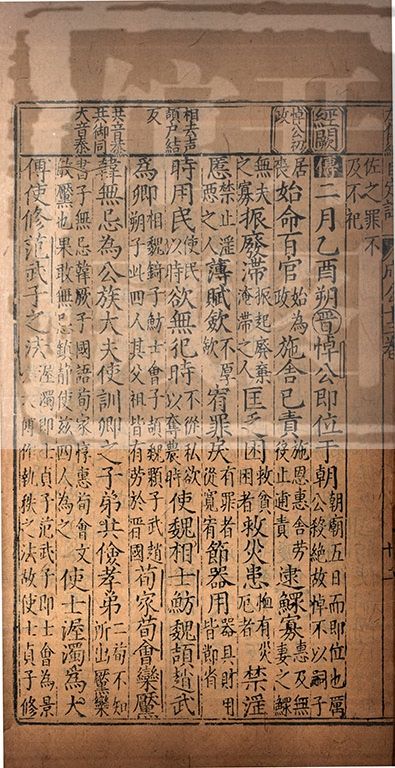 成公十三卷
經闕
悼公初
政
相去聲
頡户結
及
共音恭
共御同
大音泰
佐之罪不
及不祀
傳二月乙酉朔晉悼公即位于朝朝廟五日而即位也厲公移絶故悼不以嗣子
居喪始命百官始爲政施舍已責施恩惠舍勞役止逋責逮鰥寡惠及無妻之鰥
無夫之寡振廢滯振起廢棄淹滯之人匡乏困救貧困者救災患恤有災厄者禁淫
慝禁止淫慝之人薄賦斂不厚斂宥罪戾有罪者從寛宥節器用器具財用皆節省
時用民使民以時欲無犯時不從私欲以奪農時使魏相士魴魏頡趙武
爲卿相魏錡子魴士會子頡魏顆子武趙朔子此四人其父祖皆有勞於晉國荀家荀會欒黶
韓無忌爲公族大夫使訓卿之子弟共儉孝弟二荀不知所出黶欒
書子無忌韓厥子國語荀家惇惠荀會文敏黶也果敢無忌鎮靜使兹四人爲之使士渥濁爲大
傅使修范武子之法渥濁即士貞子范武子即士會爲景大傅作執秩之法故使士貞子修